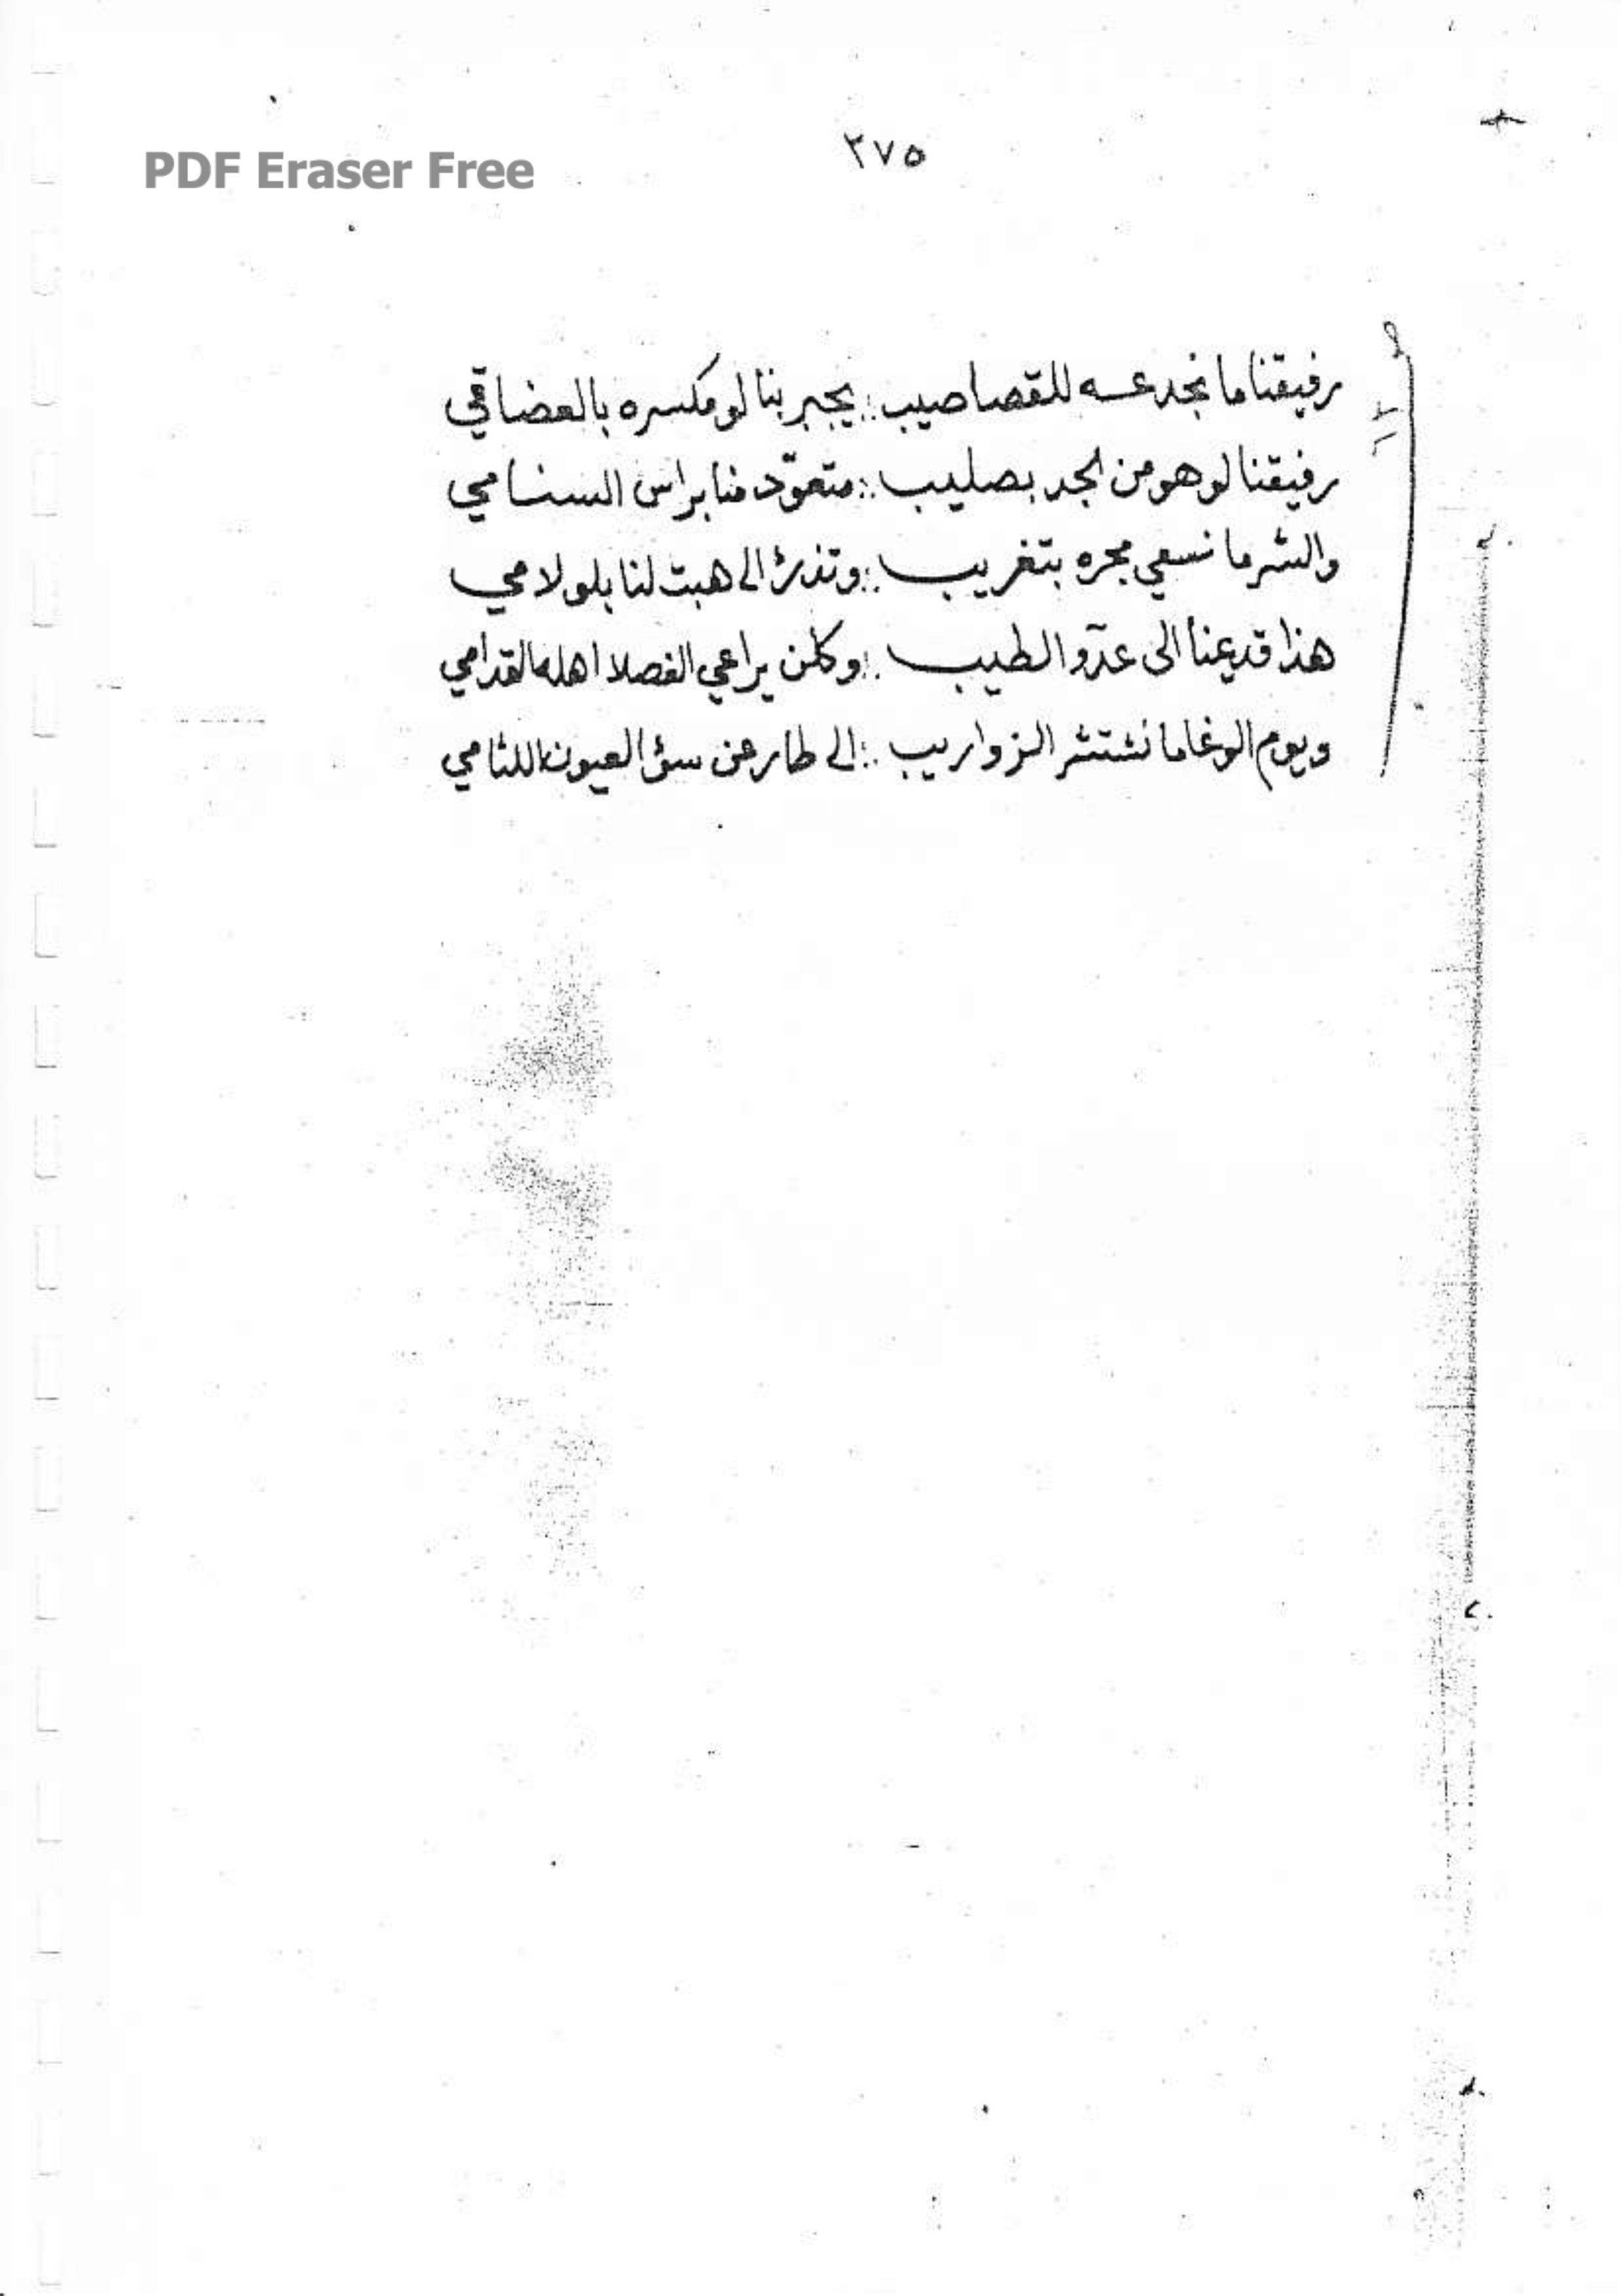 ٢٧٥
PDF Eraser Free
رفيقنا ما نجدعه للقصاصيب :: يجبر بنا لو مكسره بالعضاقي
رفيقنا لو هو من الجد بصليب :: متعوّد منا براس السنامي
والشر ما نسعي مجره بتغريب :: وتذرئ الى هبت لنا بلولامي
هذا قديمنا الى عدّو الطيب :: وكلن يراعي الفصلا اهله القدامي
ويوم الوغا ما نشتثر الزواريب :: الى طار عن سئ العيون اللثامي